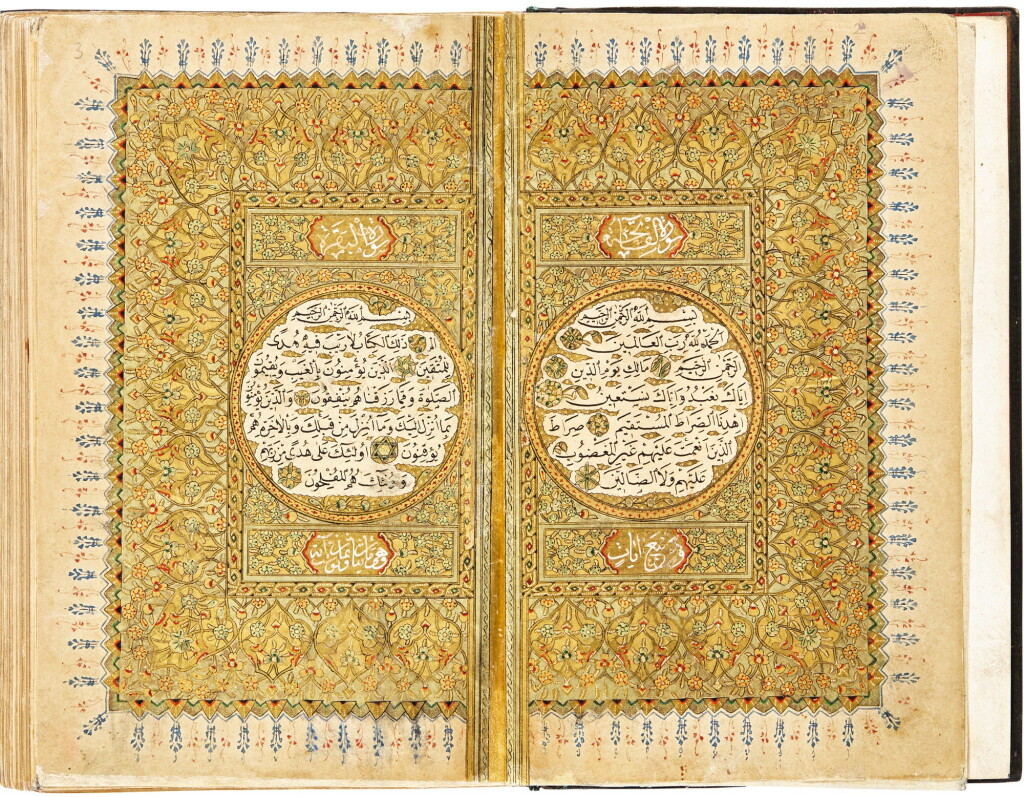 سورة الفاتحة
بسم الله الرحمن الرحيم
الحمد لله رب العالمين
الرحمن الرحيم مالك يوم الدين
اياك نعبد واياك نستعين
اهدنا الصراط المستقيم صراط
الذين انعمت عليهم غير المغضوب
عليهم ولا الضالين
وهي سبع ايات
سورة البقرة
بسم الله الرحمن الرحيم
الم ذلك الكتاب لا ريب فيه هدى
للمتقين الذين يؤمنون بالغيب ويقيمون
الصلوة ومما رزقناهم ينفقون والذين يؤمنون
بما انزل اليك وما انزل من قبلك وبالاخرة هم
يوقنون اولئك على هدى من ربهم
واولئك هم المفلحون
وهي مائتان وثمانون آية
3